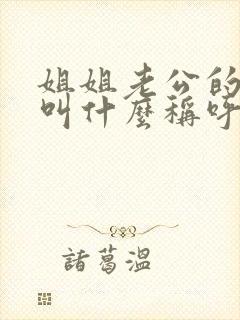 姐姐老公的
叫什麼稱呼
諸葛溫